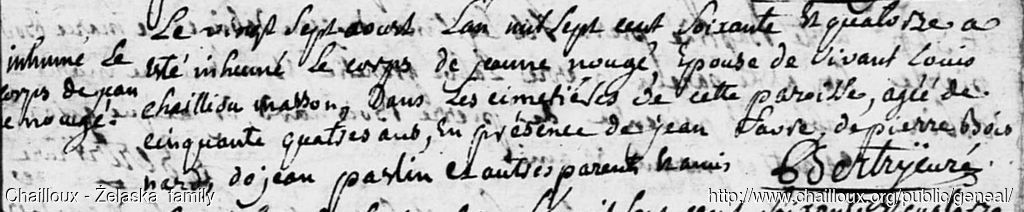 Le vingt sept aoust Lan mil sept cent soixante et quatorze a
inhumé Le
été inhumé Le corps de jeanne nougé, Epouse de vivant Louis
corps de jean
chaillou masson, Dans Les cimetières de cette paroisse, agée de
e nougé:
cinquante quatre ans, En présence de jean favre, de pierre Bois
nard, de jean parlin et autres parents et amis Bertry curé
Chailloux - Żelaska family
http://www.chailloux.org/public/geneal/